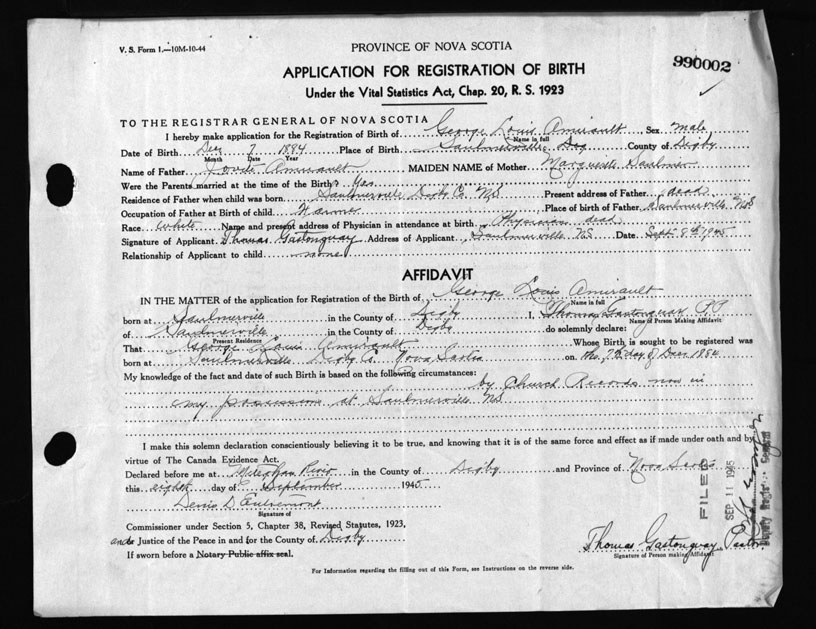 V. S. Form 1.—10M-10-44
PROVINCE OF NOVA SCOTIA
990002
APPLICATION FOR REGISTRATION OF BIRTH
Under the Vital Statistics Act, Chap. 20, R. S. 1923
TO THE REGISTRAR GENERAL OF NOVA SCOTIA
I hereby make application for the Registration of Birth of George Louis Amirault Sex male
Name in full
Date of Birth Dec 7 1884 Place of Birth Saulnierville County of Digby
Month Date Year
Name of Father Amirault MAIDEN NAME of Mother Marguerite Saulnier
Were the Parents married at the time of the Birth? Yes
Residence of Father when child was born Saulnierville Digby Co. NS Present address of Father dead
Occupation of Father at Birth of child Farmer Place of birth of Father Saulnierville NS
Race White Name and present address of Physician in attendance at birth Physician dead
Signature of Applicant Thomas Gastonguay Address of Applicant Saulnierville NS Date Sept 8th 1945
Relationship of Applicant to child none
AFFIDAVIT
IN THE MATTER of the application for Registration of the Birth of George Louis Amirault
Name in full
born at Saulnierville in the County of Digby I, Thomas Gastonguay P.P.
Name of Person Making Affidavit
of Saulnierville in the County of Digby do solemnly declare:
Present Residence
That George Louis Amirault Whose Birth is sought to be registered was
born at Saulnierville Digby Co. Nova Scotia on the 7th day of Dec 1884
My knowledge of the fact and date of such Birth is based on the following circumstances:
by Church Records now in
my possession at Saulnierville NS
I make this solemn declaration conscientiously believing it to be true, and knowing that it is of the same force and effect as if made under oath and by
virtue of The Canada Evidence Act.
Declared before me at Meteghan River in the County of Digby and Province of Nova Scotia
this eighth day of September 1945
Denis D. Entremont
Signature of
Commissioner under Section 5, Chapter 38, Revised Statutes, 1923,
and a Justice of the Peace in and for the County of Digby
If sworn before a Notary Public affix seal.
Thomas Gastonguay Pastor
Signature of Person making Affidavit
FILED
SEP 11 1945
For Information regarding the filling out of this Form, see Instructions on the reverse side.